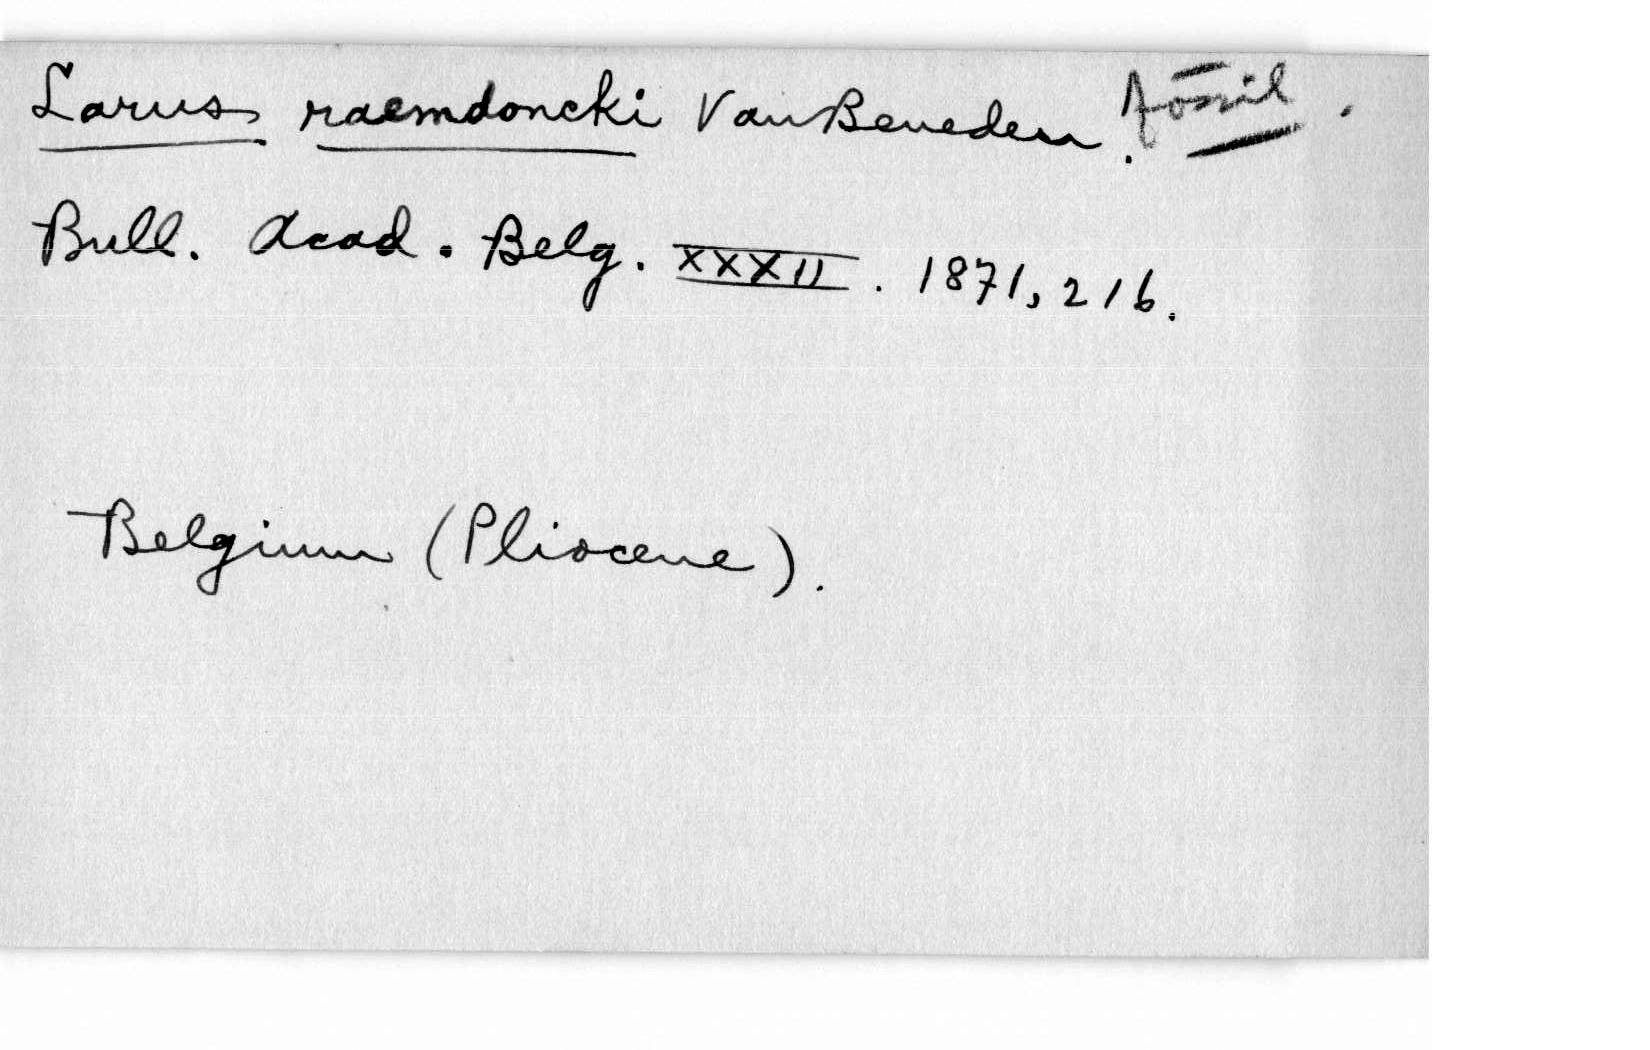 Larus raemdoncki Van Beneden. fossil.
Bull. Acad. Belg. XXXII. 1871, 216.
Belgium (Pliocene).